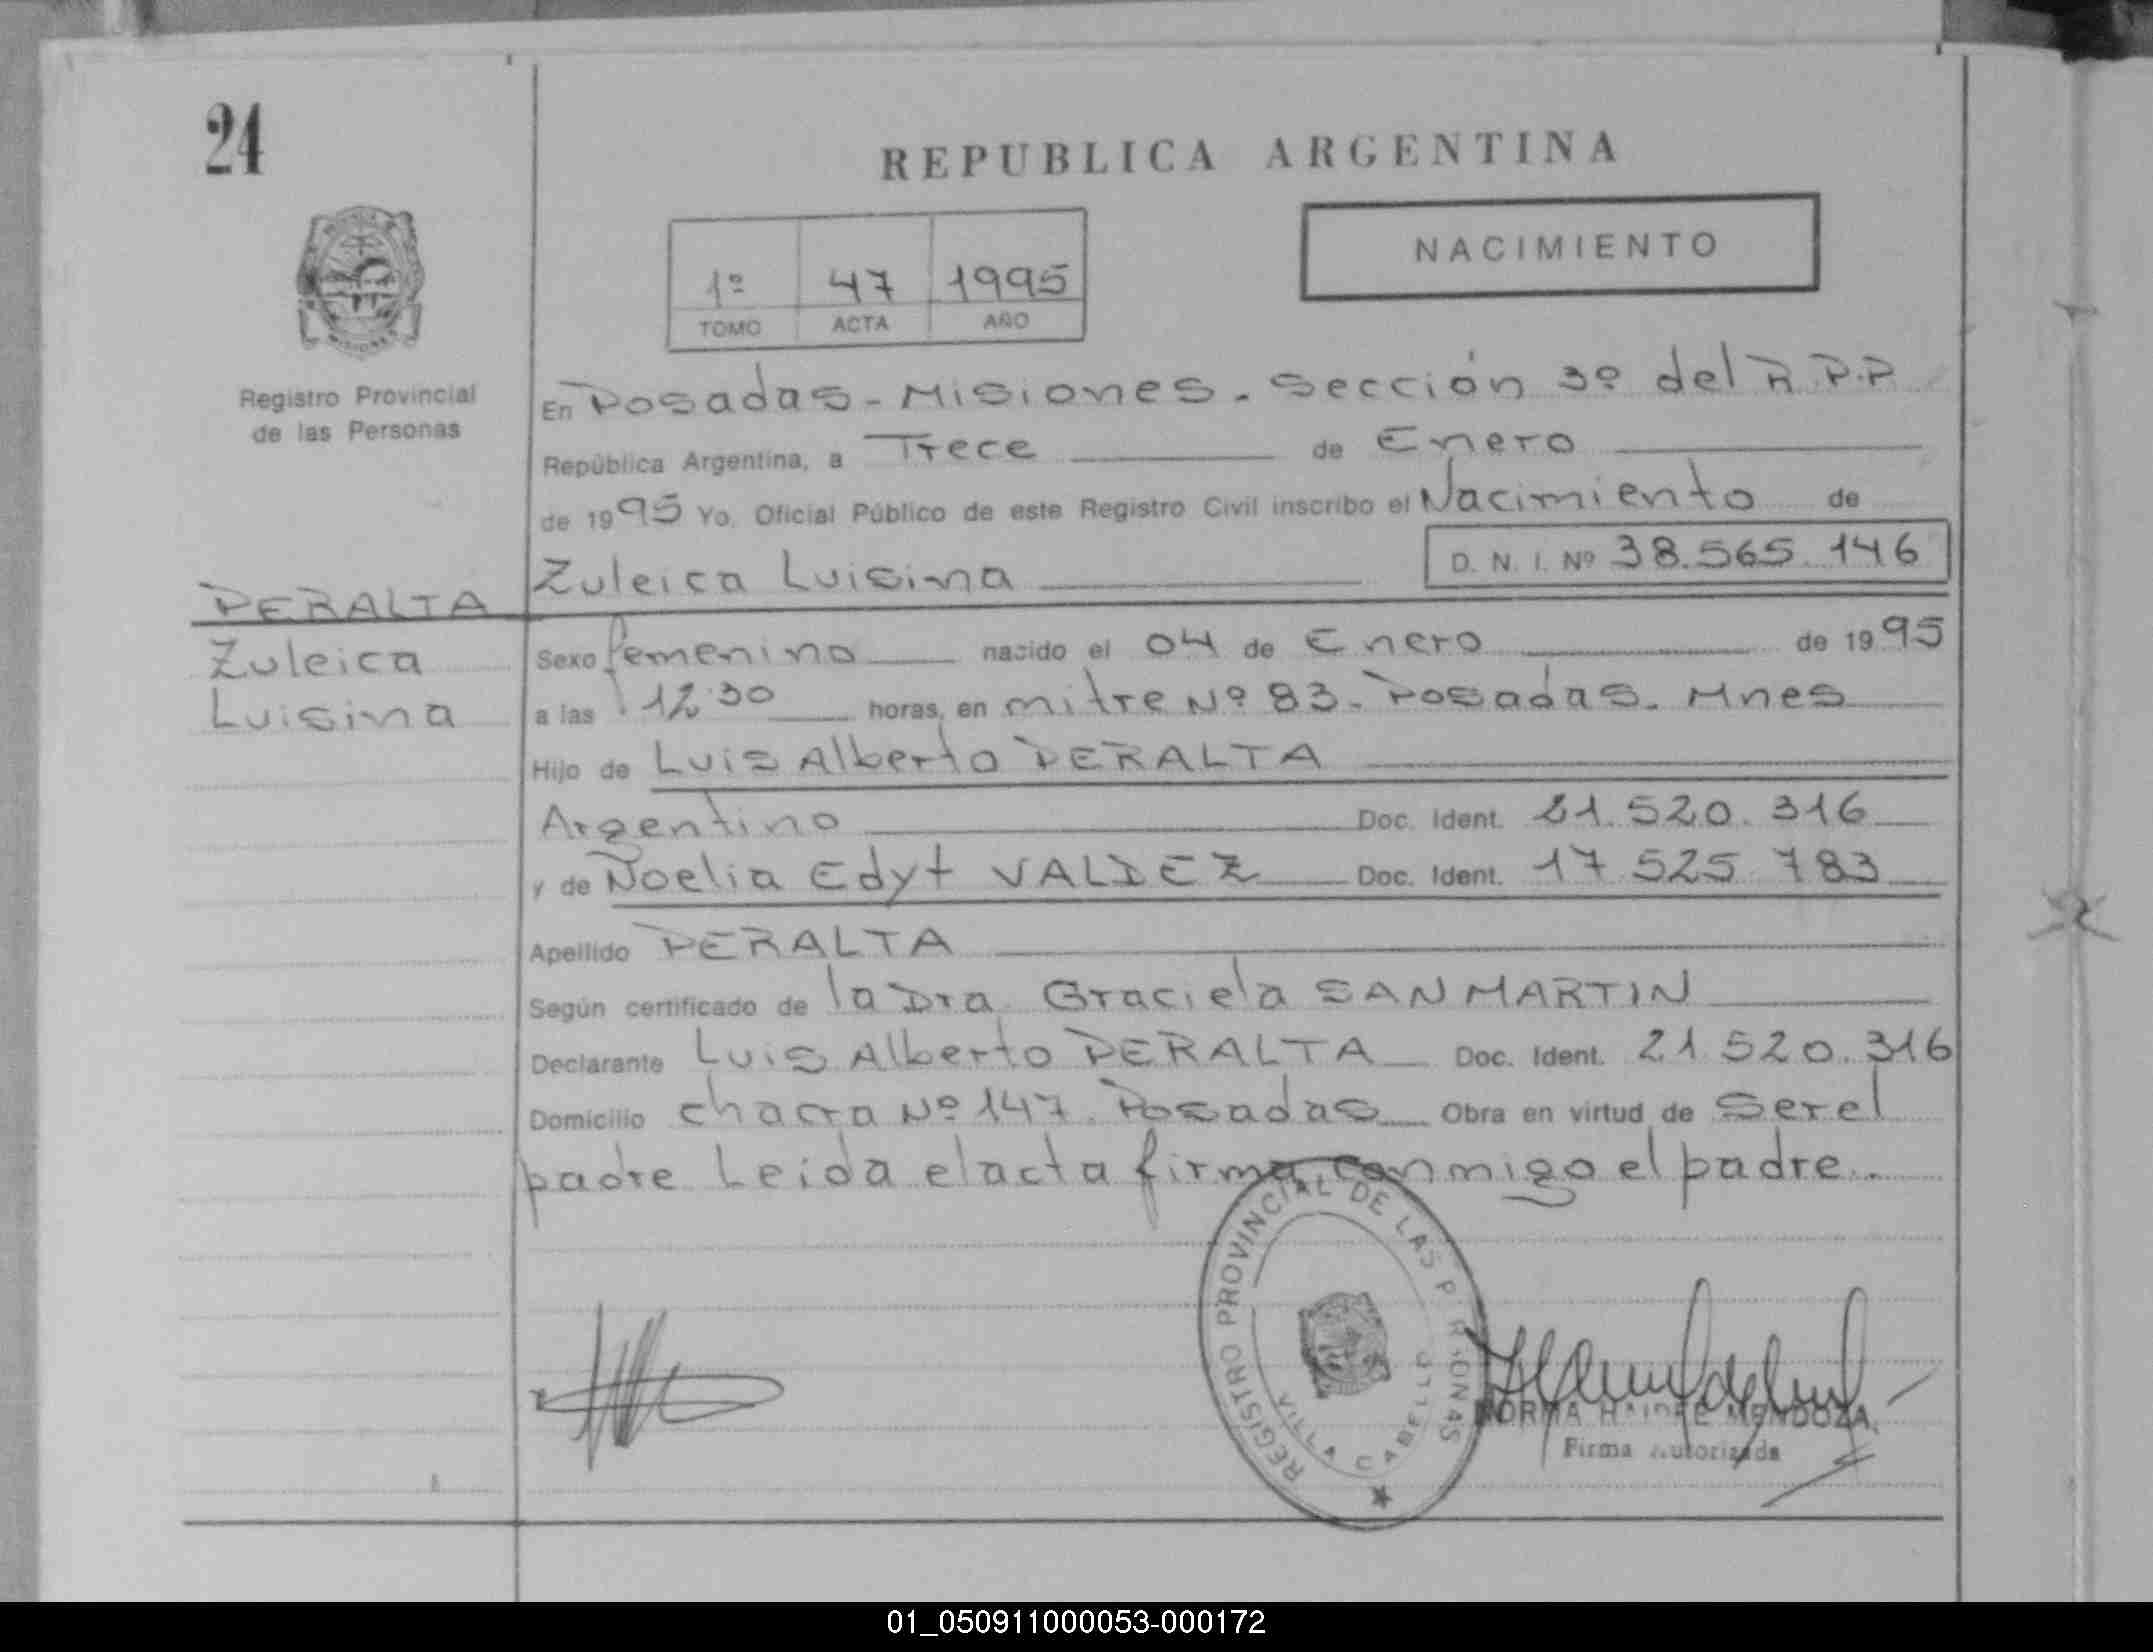 24
REPUBLICA ARGENTINA
NACIMIENTO
1º 47 1995
TOMO ACTA AÑO
MISIONES
Registro Provincial
de las Personas
En Posadas - Misiones. Sección 3º del R.P.P
República Argentina, a Trece de Enero
de 1995 Yo. Oficial Público de este Registro Civil inscribo el Nacimiento de
Zuleica Luisina D. N. I. Nº 38.565.146
PERALTA
Zuleica
Luisina
Sexo femenino nacido el 04 de Enero de 1995
a las 12:30 horas, en mitre Nº 83. Posadas. Mnes
Hijo de Luis Alberto PERALTA
Argentino Doc. Ident. 21.520.316
y de Noelia Edyt VALDEZ Doc. Ident. 17 525 783
Apellido PERALTA
Según certificado de la Dra Graciela SAN MARTIN
Declarante Luis Alberto PERALTA Doc. Ident. 21 520.316
Domicilio chacra Nº 147. Posadas Obra en virtud de Ser el
padre Leida el acta firma conmigo el padre..
REGISTRO PROVINCIAL DE LAS PERSONAS
VILLA CABELLO
NORMA HAIDEE MENDOZA
Firma Autorizada
01_050911000053-000172